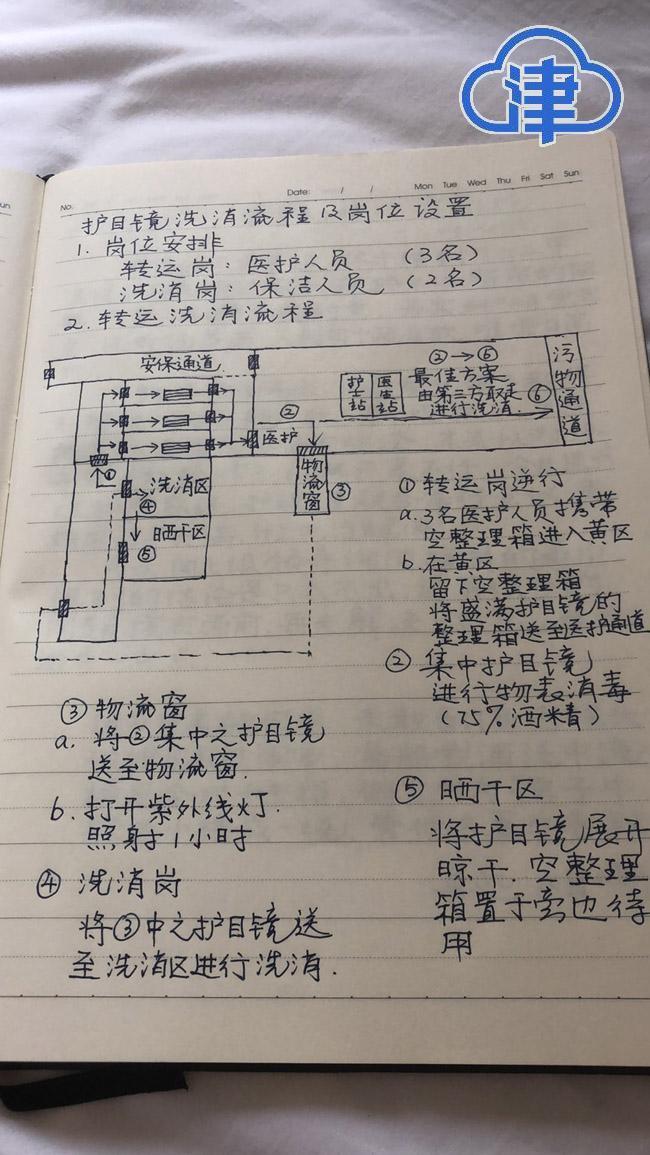 津
un
No.
Date: / /
Mon Tue Wed Thu Fri Sat Sun
护目镜洗消流程及岗位设置
1. 岗位安排
转运岗：医护人员 （3名）
洗消岗：保洁人员 （2名）
2. 转运洗消流程
安保通道
②
医护
护士站
医生站
②→⑥
最佳方案
由第三方取走
进行洗消.
⑥
污物通道
物流窗
③
①
洗消区
④
晒干区
⑤
① 转运岗逆行
a. 3名医护人员携带
空整理箱进入黄区
b. 在黄区
留下空整理箱
将盛满护目镜的
整理箱送至医护通道
② 集中护目镜
进行物表消毒
（75%酒精）
③ 物流窗
a. 将②集中之护目镜
送至物流窗.
b. 打开紫外线灯.
照射1小时
④ 洗消岗
将③中之护目镜送
至洗消区进行洗消.
⑤ 晒干区
将护目镜展开
晾干. 空整理
箱置于旁边待
用